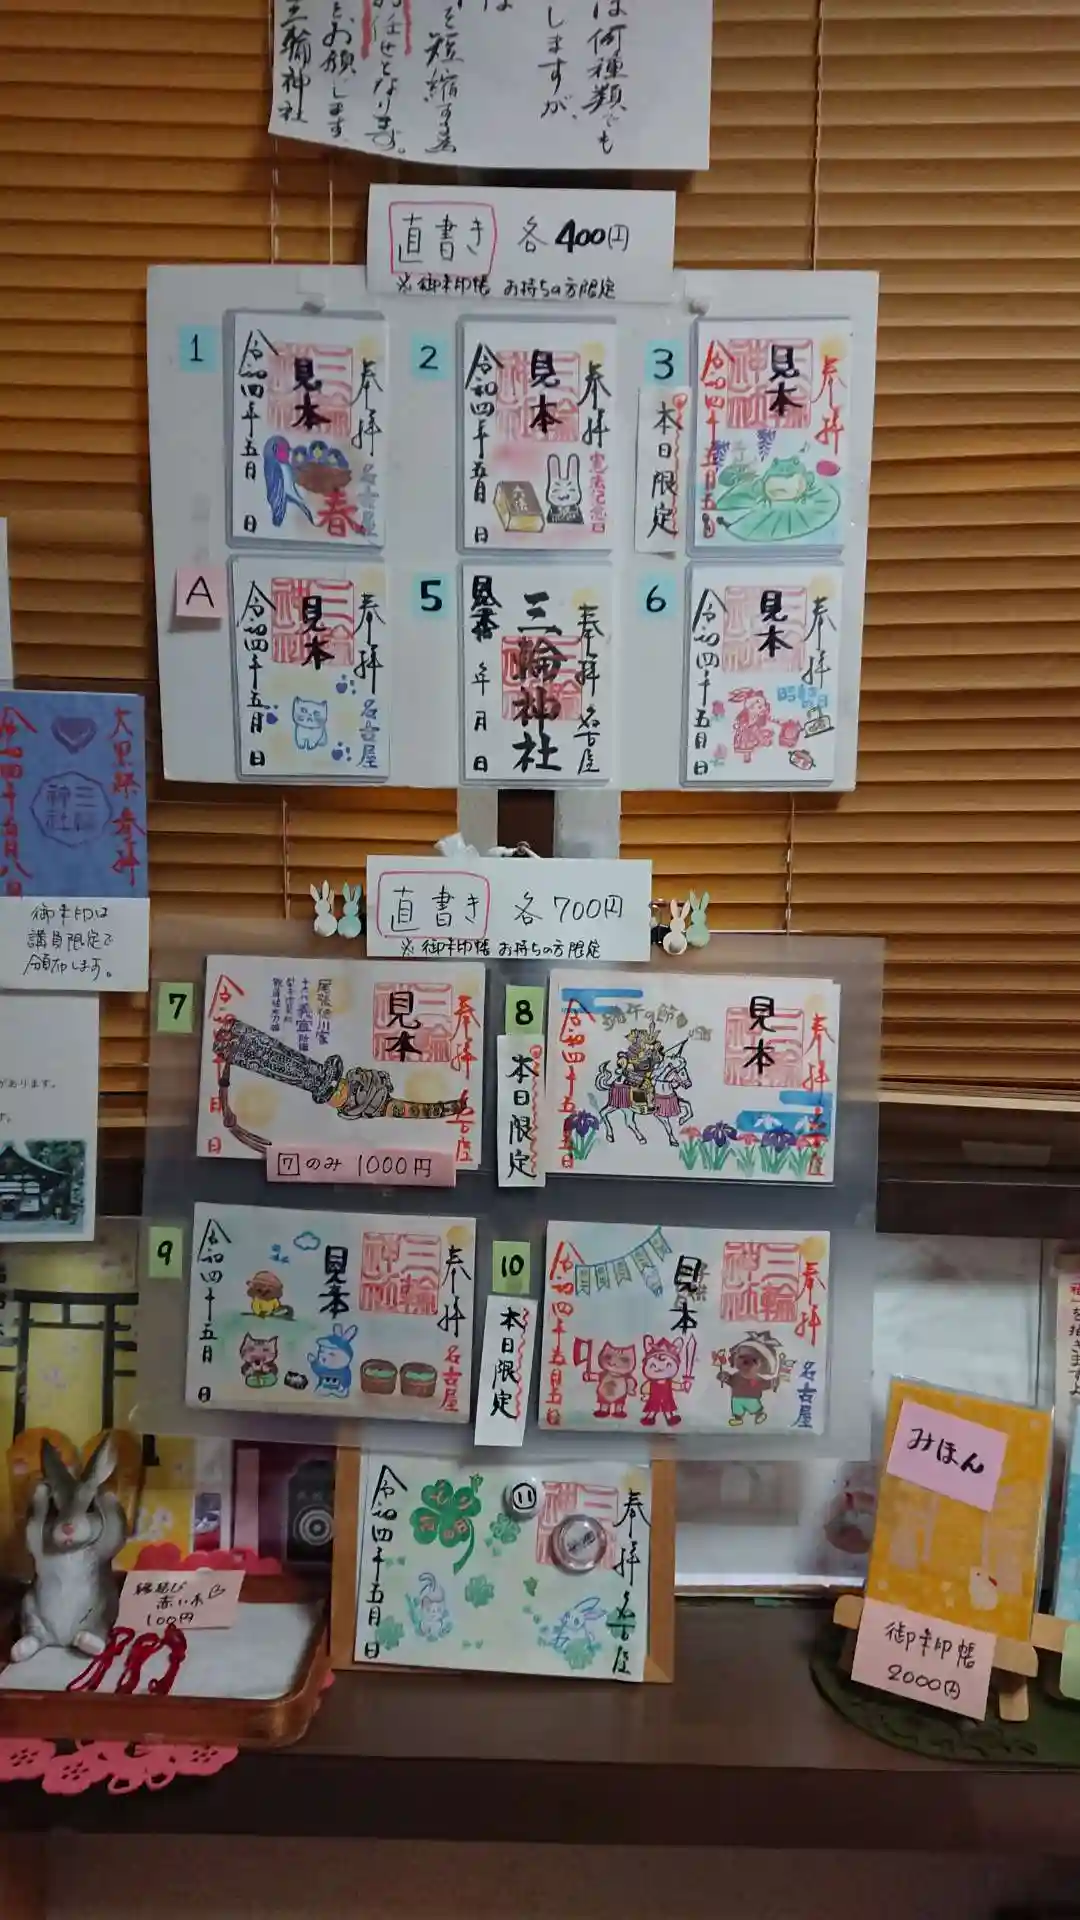 は何種類でも
しますが、
は
を短縮する為
お任せとなります。
とお願いします
三輪神社
直書き 各400円
※御朱印帳 お持ちの方限定
1
奉拝
見本
三輪神社
令和四年五月 日
名古屋
春
2
奉拝
見本
三輪神社
令和四年五月 日
憲法記念日
六法
3
本日限定
奉拝
見本
三輪神社
令和四年五月五日
A
奉拝
見本
三輪神社
令和四年五月 日
名古屋
5
奉拝 名古屋
三輪神社
見本
年 月 日
6
奉拝
見本
三輪神社
令和四年五月 日
昭和の日
大黒祭 奉拝
三輪神社
令和四年五月八日
御朱印は
講員限定で
頒布します。
があります。
す。
直書き 各700円
※御朱印帳 お持ちの方限定
7
奉拝 名古屋
見本
三輪神社
尾張徳川家
義宣
日
7のみ 1000円
8
本日限定
奉拝 名古屋
見本
三輪神社
端午の節句
令和四年五月五日
9
奉拝 名古屋
見本
三輪神社
令和四年五月 日
10
本日限定
奉拝
名古屋
見本
三輪神社
令和四年五月五日
11
奉拝 名古屋
令和四年五月 日
縁結び
赤い糸
100円
みほん
御朱印帳
2000円